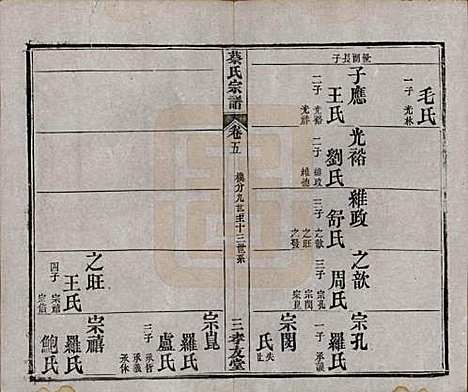 毛氏
一子 光林
後開長子
子應
王氏
二子 光裕 光祥
光裕
劉氏
二子 維政 維德
維政
舒氏
三子 之歆 之旺 之發
之歆
周氏
三子 宗孔 宗閔 宗崑
宗孔
羅氏
一子 承
宗閔
氏 失
蔡氏宗譜
卷五
機分九世至十三世系
三 孝友堂
宗崑
羅氏
盧氏
三子 承哲 承義 承休
之旺
王氏
四子 宗禧 宗信
宗禧
羅氏
鮑氏